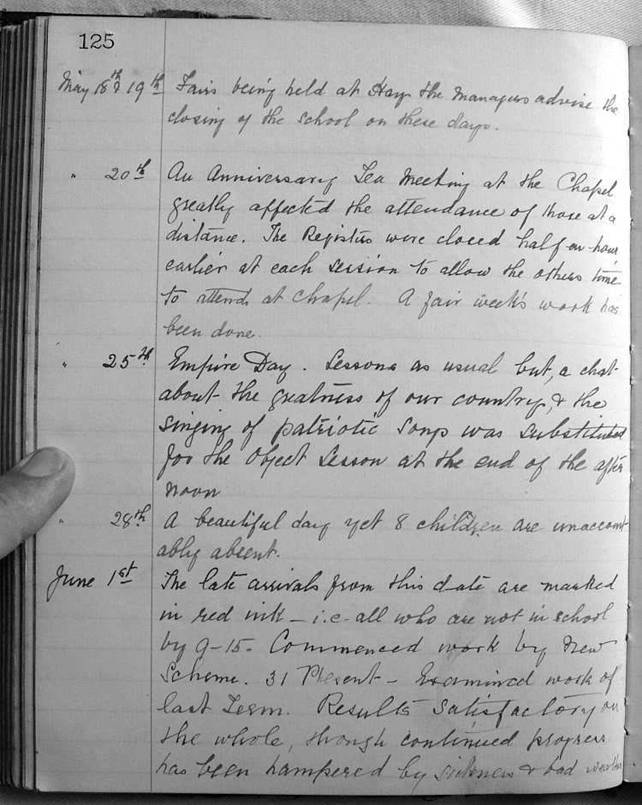 125
May 18th & 19th Fairs being held at Hay the Managers advise the
closing of the school on these days.
" 20th An Anniversary Tea Meeting at the Chapel
greatly affected the attendance of those at a
distance. The Registers were closed half-an-hour
earlier at each session to allow the others time
to attend at Chapel. A fair week's work has
been done.
" 25th Empire Day. Lessons as usual but, a chat
about the greatness of our country, & the
singing of patriotic songs was substituted
for the Object Lesson at the end of the after
noon
" 28th A beautiful day yet 8 children are unaccount
ably absent.
June 1st The late arrivals from this date are marked
in red ink - i.e - all who are not in school
by 9-15 - Commenced work by New
Scheme. 31 Present - Examined work of
last Term. Results Satisfactory on
the whole, though continued progress
has been hampered by sickness & bad